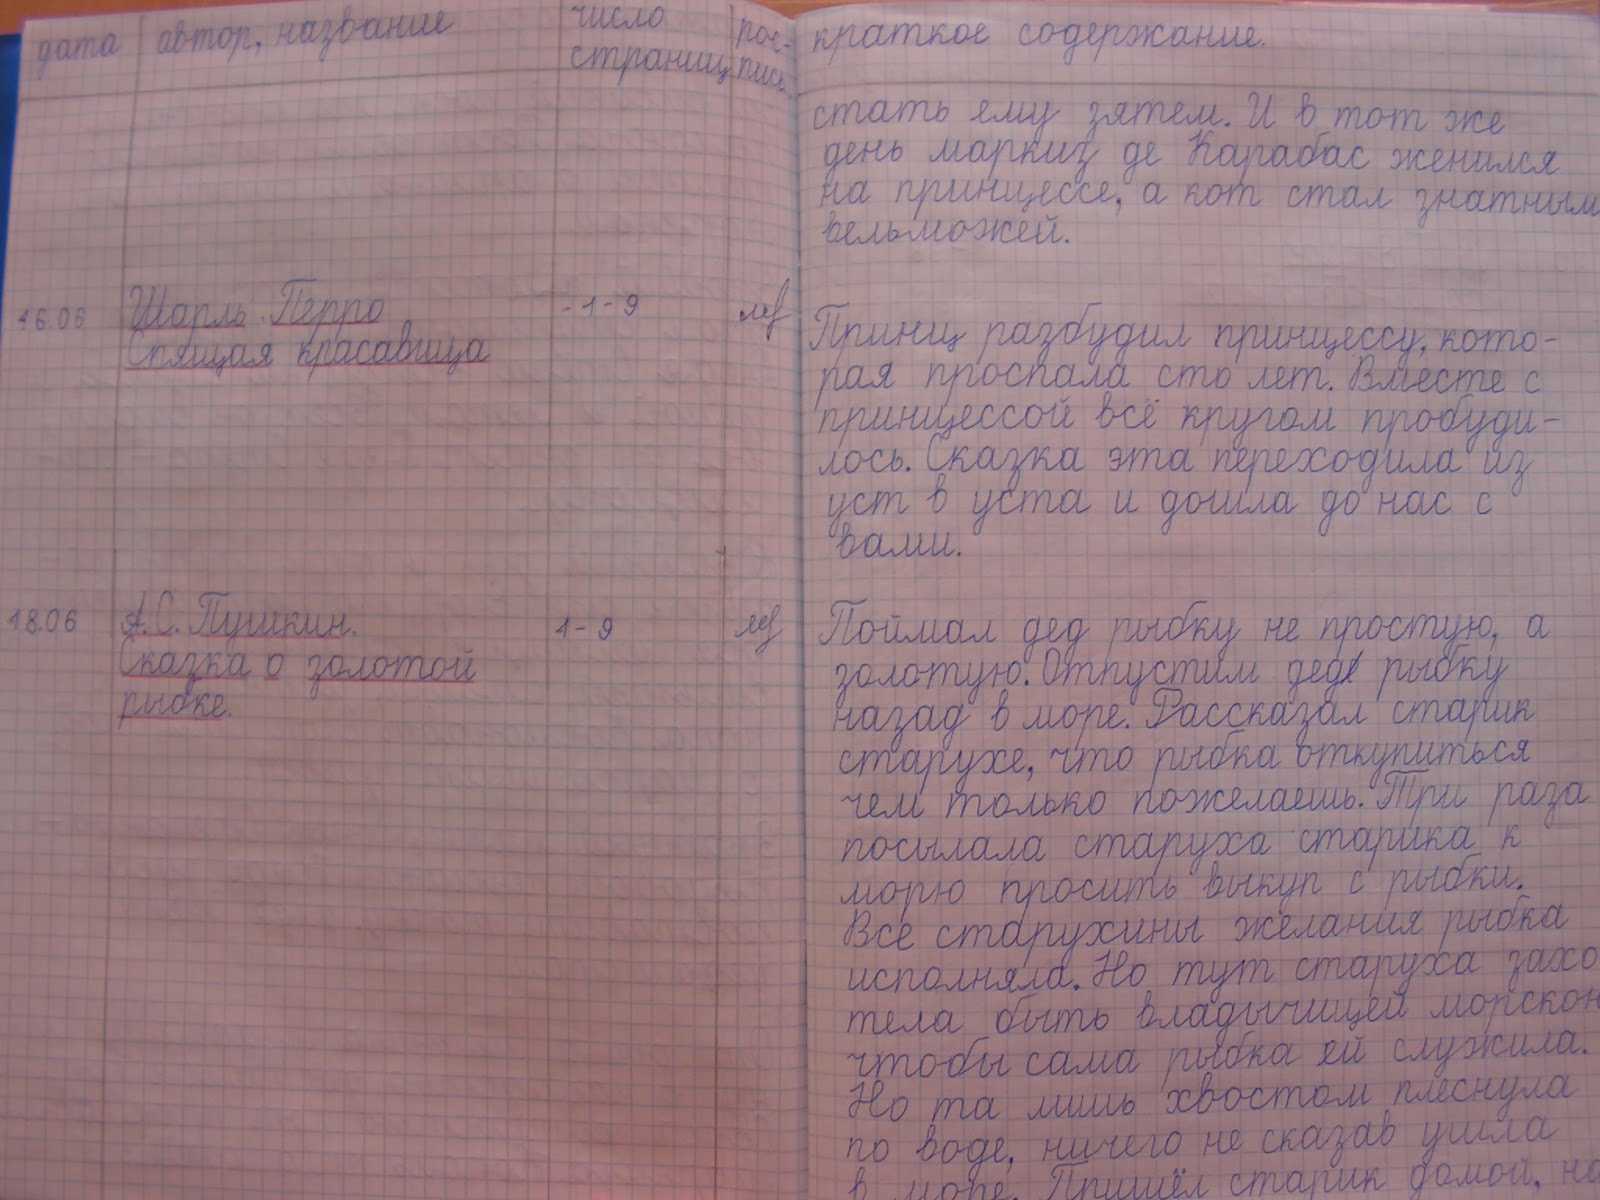 дата автор, название число страниц рос-пись краткое содержание.
стать ему зятем. И в тот же
день маркиз де Карабас женился
на принцессе, а кот стал знатным
вельможей.
16.06 Шарль Перро -1-9
Спящая красавица
Принц разбудил принцессу, кото-
рая проспала сто лет. Вместе с
принцессой всё кругом пробуди-
лось. Сказка эта переходила из
уст в уста и дошла до нас с
вами.
18.06 А.С. Пушкин. 1-9
Сказка о золотой
рыбке.
Поймал дед рыбку не простую, а
золотую. Отпустим дед рыбку
назад в море. Рассказал старик
старухе, что рыбка откупиться
чем только пожелаешь. Три раза
посылала старуха старика к
морю просить выкуп с рыбки.
Все старухины желания рыбка
исполняла. Но тут старуха захо
тела быть владычицей морской
чтобы сама рыбка ей служила.
Но та лишь хвостом плеснула
по воде, ничего не сказав ушла
в море. Пришёл старик домой, но